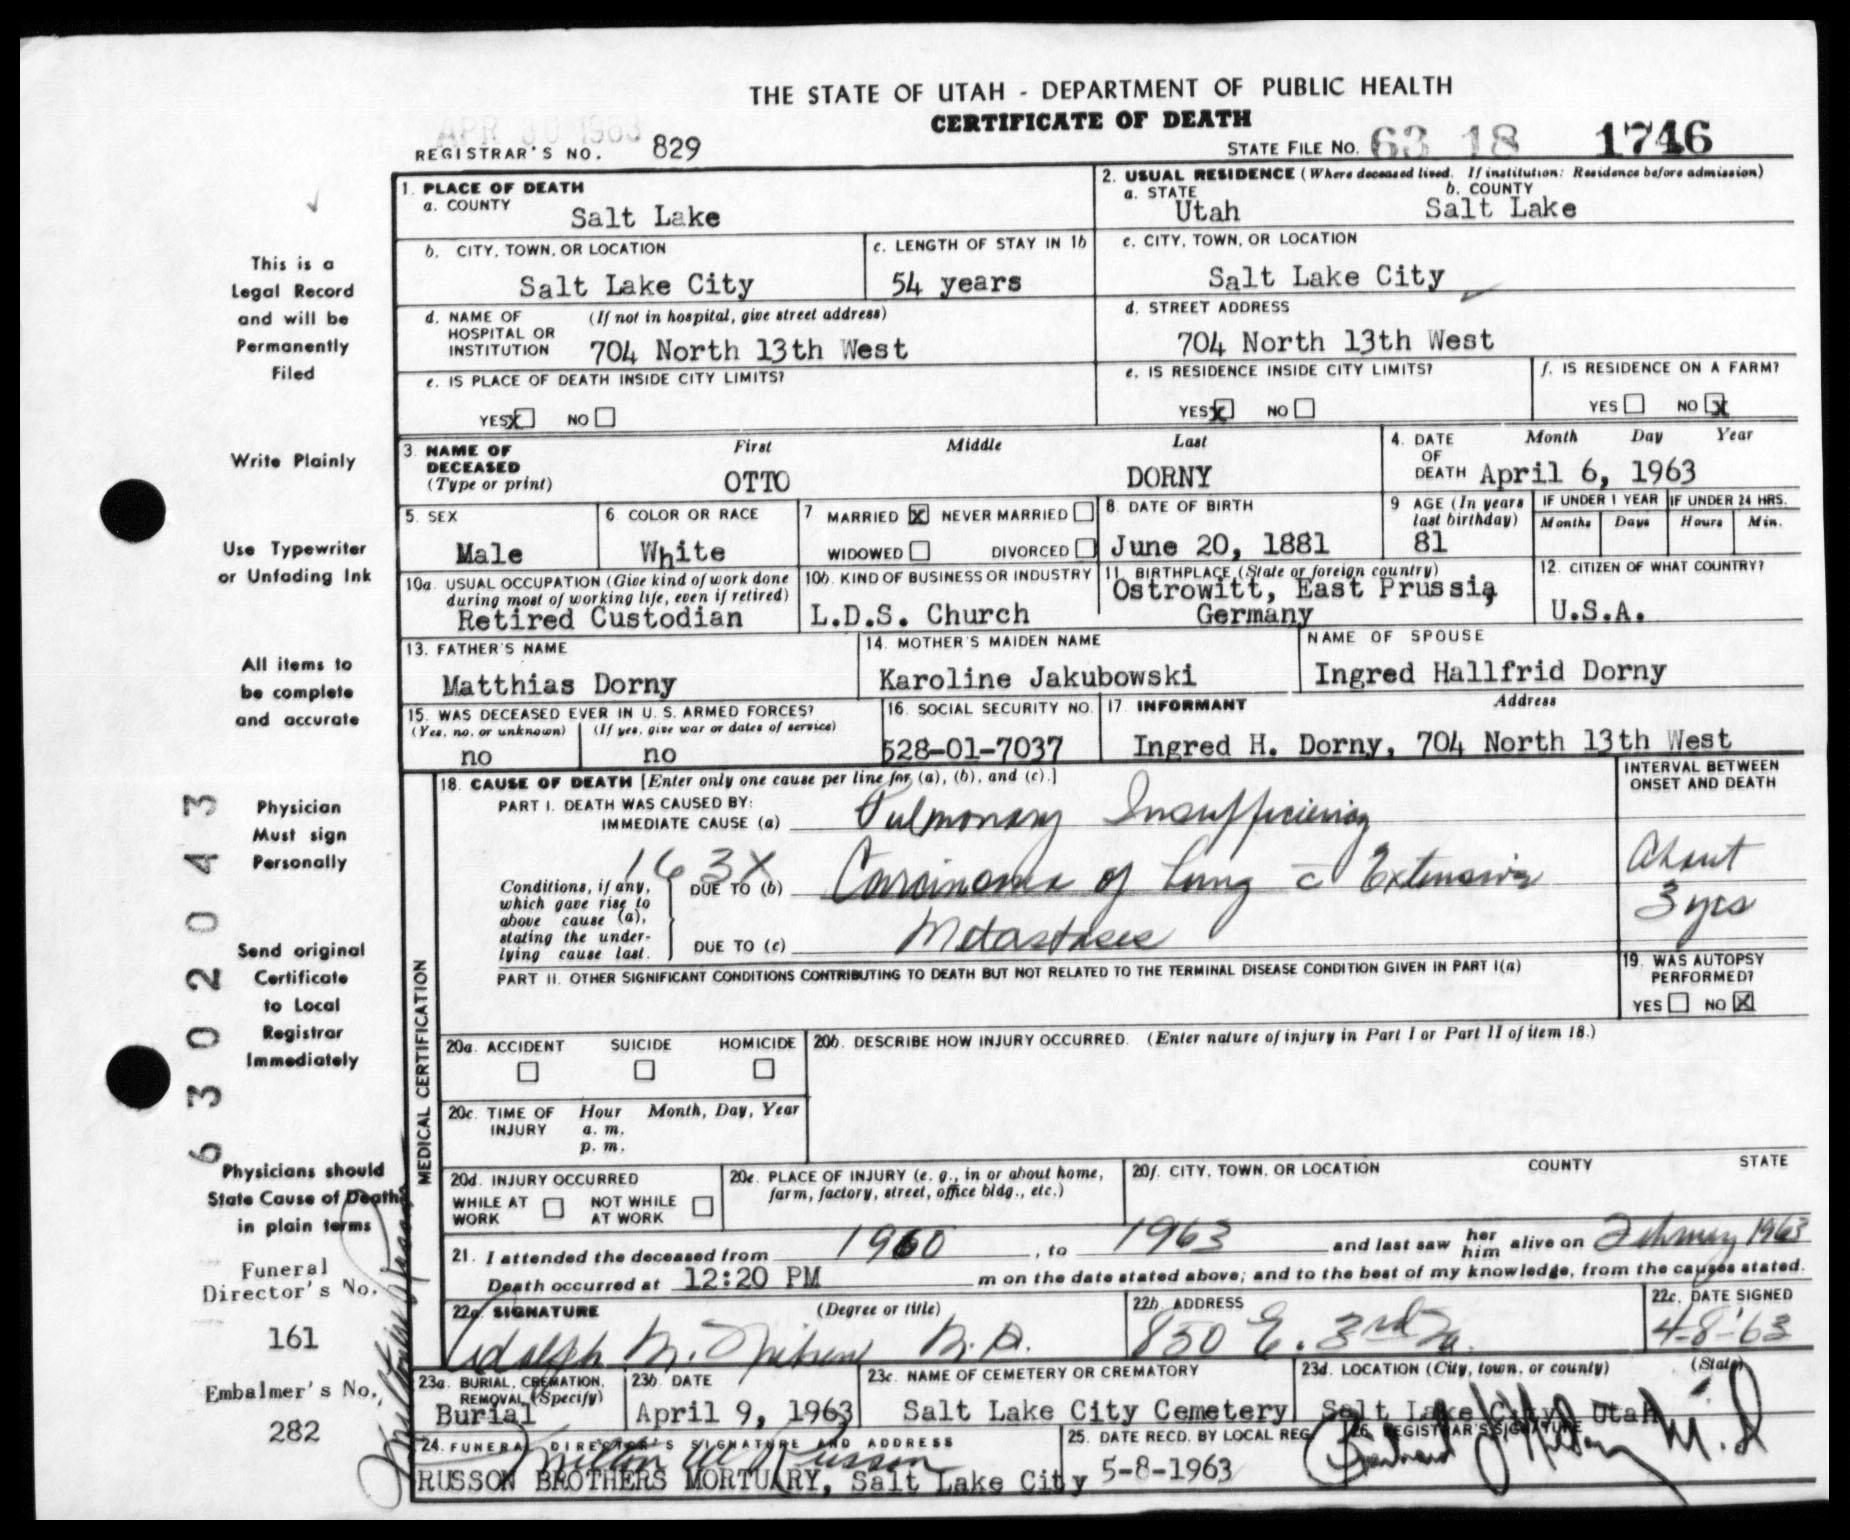 THE STATE OF UTAH - DEPARTMENT OF PUBLIC HEALTH
CERTIFICATE OF DEATH
APR 30 1963
REGISTRAR'S NO. 829
STATE FILE NO. 63 18 1746
1. PLACE OF DEATH
a. COUNTY
Salt Lake
2. USUAL RESIDENCE (Where deceased lived. If institution: Residence before admission)
a. STATE
Utah
b. COUNTY
Salt Lake
b. CITY, TOWN, OR LOCATION
Salt Lake City
c. LENGTH OF STAY IN 1b
54 years
c. CITY, TOWN, OR LOCATION
Salt Lake City
d. NAME OF HOSPITAL OR INSTITUTION
(If not in hospital, give street address)
704 North 13th West
d. STREET ADDRESS
704 North 13th West
e. IS PLACE OF DEATH INSIDE CITY LIMITS?
YES X NO
e. IS RESIDENCE INSIDE CITY LIMITS?
YES X NO
f. IS RESIDENCE ON A FARM?
YES NO X
3. NAME OF DECEASED (Type or print)
First Middle Last
OTTO DORNY
4. DATE OF DEATH
Month Day Year
April 6, 1963
5. SEX
Male
6. COLOR OR RACE
White
7 MARRIED X NEVER MARRIED
WIDOWED DIVORCED
8. DATE OF BIRTH
June 20, 1881
9 AGE (In years last birthday)
81
IF UNDER 1 YEAR
Months Days
IF UNDER 24 HRS.
Hours Min.
10a. USUAL OCCUPATION (Give kind of work done during most of working life, even if retired)
Retired Custodian
10b. KIND OF BUSINESS OR INDUSTRY
L.D.S. Church
11. BIRTHPLACE (State or foreign country)
Ostrowitt, East Prussia,
Germany
12. CITIZEN OF WHAT COUNTRY?
U.S.A.
13. FATHER'S NAME
Matthias Dorny
14. MOTHER'S MAIDEN NAME
Karoline Jakubowski
NAME OF SPOUSE
Ingred Hallfrid Dorny
15. WAS DECEASED EVER IN U. S. ARMED FORCES?
(Yes, no, or unknown) (If yes, give war or dates of service)
no no
16. SOCIAL SECURITY NO.
528-01-7037
17 INFORMANT Address
Ingred H. Dorny, 704 North 13th West
18. CAUSE OF DEATH [Enter only one cause per line for (a), (b), and (c).]
INTERVAL BETWEEN ONSET AND DEATH
PART I. DEATH WAS CAUSED BY:
IMMEDIATE CAUSE (a) Pulmonary Insufficiency
163X
Conditions, if any, which gave rise to above cause (a), stating the underlying cause last.
DUE TO (b) Carcinoma of Lung c Extensive
About
3 yrs
DUE TO (c) Metastases
PART II. OTHER SIGNIFICANT CONDITIONS CONTRIBUTING TO DEATH BUT NOT RELATED TO THE TERMINAL DISEASE CONDITION GIVEN IN PART I(a)
19. WAS AUTOPSY PERFORMED?
YES NO X
MEDICAL CERTIFICATION
20a. ACCIDENT SUICIDE HOMICIDE
20b. DESCRIBE HOW INJURY OCCURRED. (Enter nature of injury in Part I or Part II of item 18.)
20c. TIME OF INJURY
Hour Month, Day, Year
a. m.
p. m.
20d. INJURY OCCURRED
WHILE AT WORK NOT WHILE AT WORK
20e. PLACE OF INJURY (e. g., in or about home, farm, factory, street, office bldg., etc.)
20f. CITY, TOWN, OR LOCATION COUNTY STATE
21. I attended the deceased from 1960, to 1963 and last saw her him alive on February 1963
Death occurred at 12:20 PM m on the date stated above; and to the best of my knowledge, from the causes stated.
22a. SIGNATURE (Degree or title)
Adolph M. Nielsen M.D.
22b. ADDRESS
850 E. 3rd So.
22c. DATE SIGNED
4-8-'63
23a. BURIAL, CREMATION, REMOVAL (Specify)
Burial
23b DATE
April 9, 1963
23c. NAME OF CEMETERY OR CREMATORY
Salt Lake City Cemetery
23d. LOCATION (City, town, or county) (State)
Salt Lake City Utah
24. FUNERAL DIRECTOR'S SIGNATURE AND ADDRESS
Milton W Russon
RUSSON BROTHERS MORTUARY, Salt Lake City
25. DATE RECD. BY LOCAL REG
5-8-1963
26. REGISTRAR'S SIGNATURE
This is a
Legal Record
and will be
Permanently
Filed
Write Plainly
Use Typewriter
or Unfading Ink
All items to
be complete
and accurate
Physician
Must sign
Personally
Send original
Certificate
to Local
Registrar
Immediately
Physicians should
State Cause of Death
in plain terms
Funeral
Director's No.
161
Embalmer's No.
282
63302043